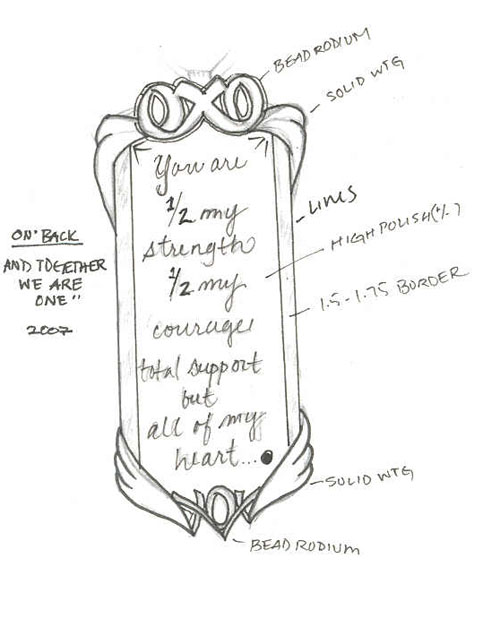 BEAD RODIUM
SOLID WTG
OXO
You are
1/2 my
strength
1/2 my
courage
total support
but
all of my
heart...
LINES
HIGH POLISH(+/-)
1.5-1.75 BORDER
ON BACK
AND TOGETHER
WE ARE
ONE"
2007
SOLID WTG
BEAD RODIUM